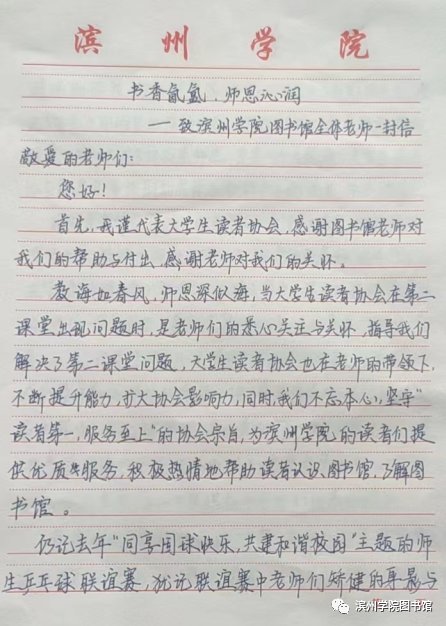 滨州学院
书香氤氲，师恩沁润
——致滨州学院图书馆全体老师一封信
敬爱的老师们：
您好！
首先，我谨代表大学生读者协会，感谢图书馆老师对
我们的帮助与付出，感谢老师对我们的关怀。
教诲如春风，师恩深似海，当大学生读者协会在第二
课堂出现问题时，是老师们的悉心关注与关怀，指导我们
解决了第二课堂问题，大学生读者协会也在老师的带领下，
不断提升能力，扩大协会影响力，同时，我们不忘本心，坚守“
读者第一，服务至上”的协会宗旨，为滨州学院的读者们提
供优质服务，积极热情地帮助读者认识图书馆，了解图
书馆。
仍记去年“同享团球快乐，共建和谐校园”主题的师
生乒乓球联谊赛，犹记联谊赛中老师们矫健的身影与
滨州学院图书馆